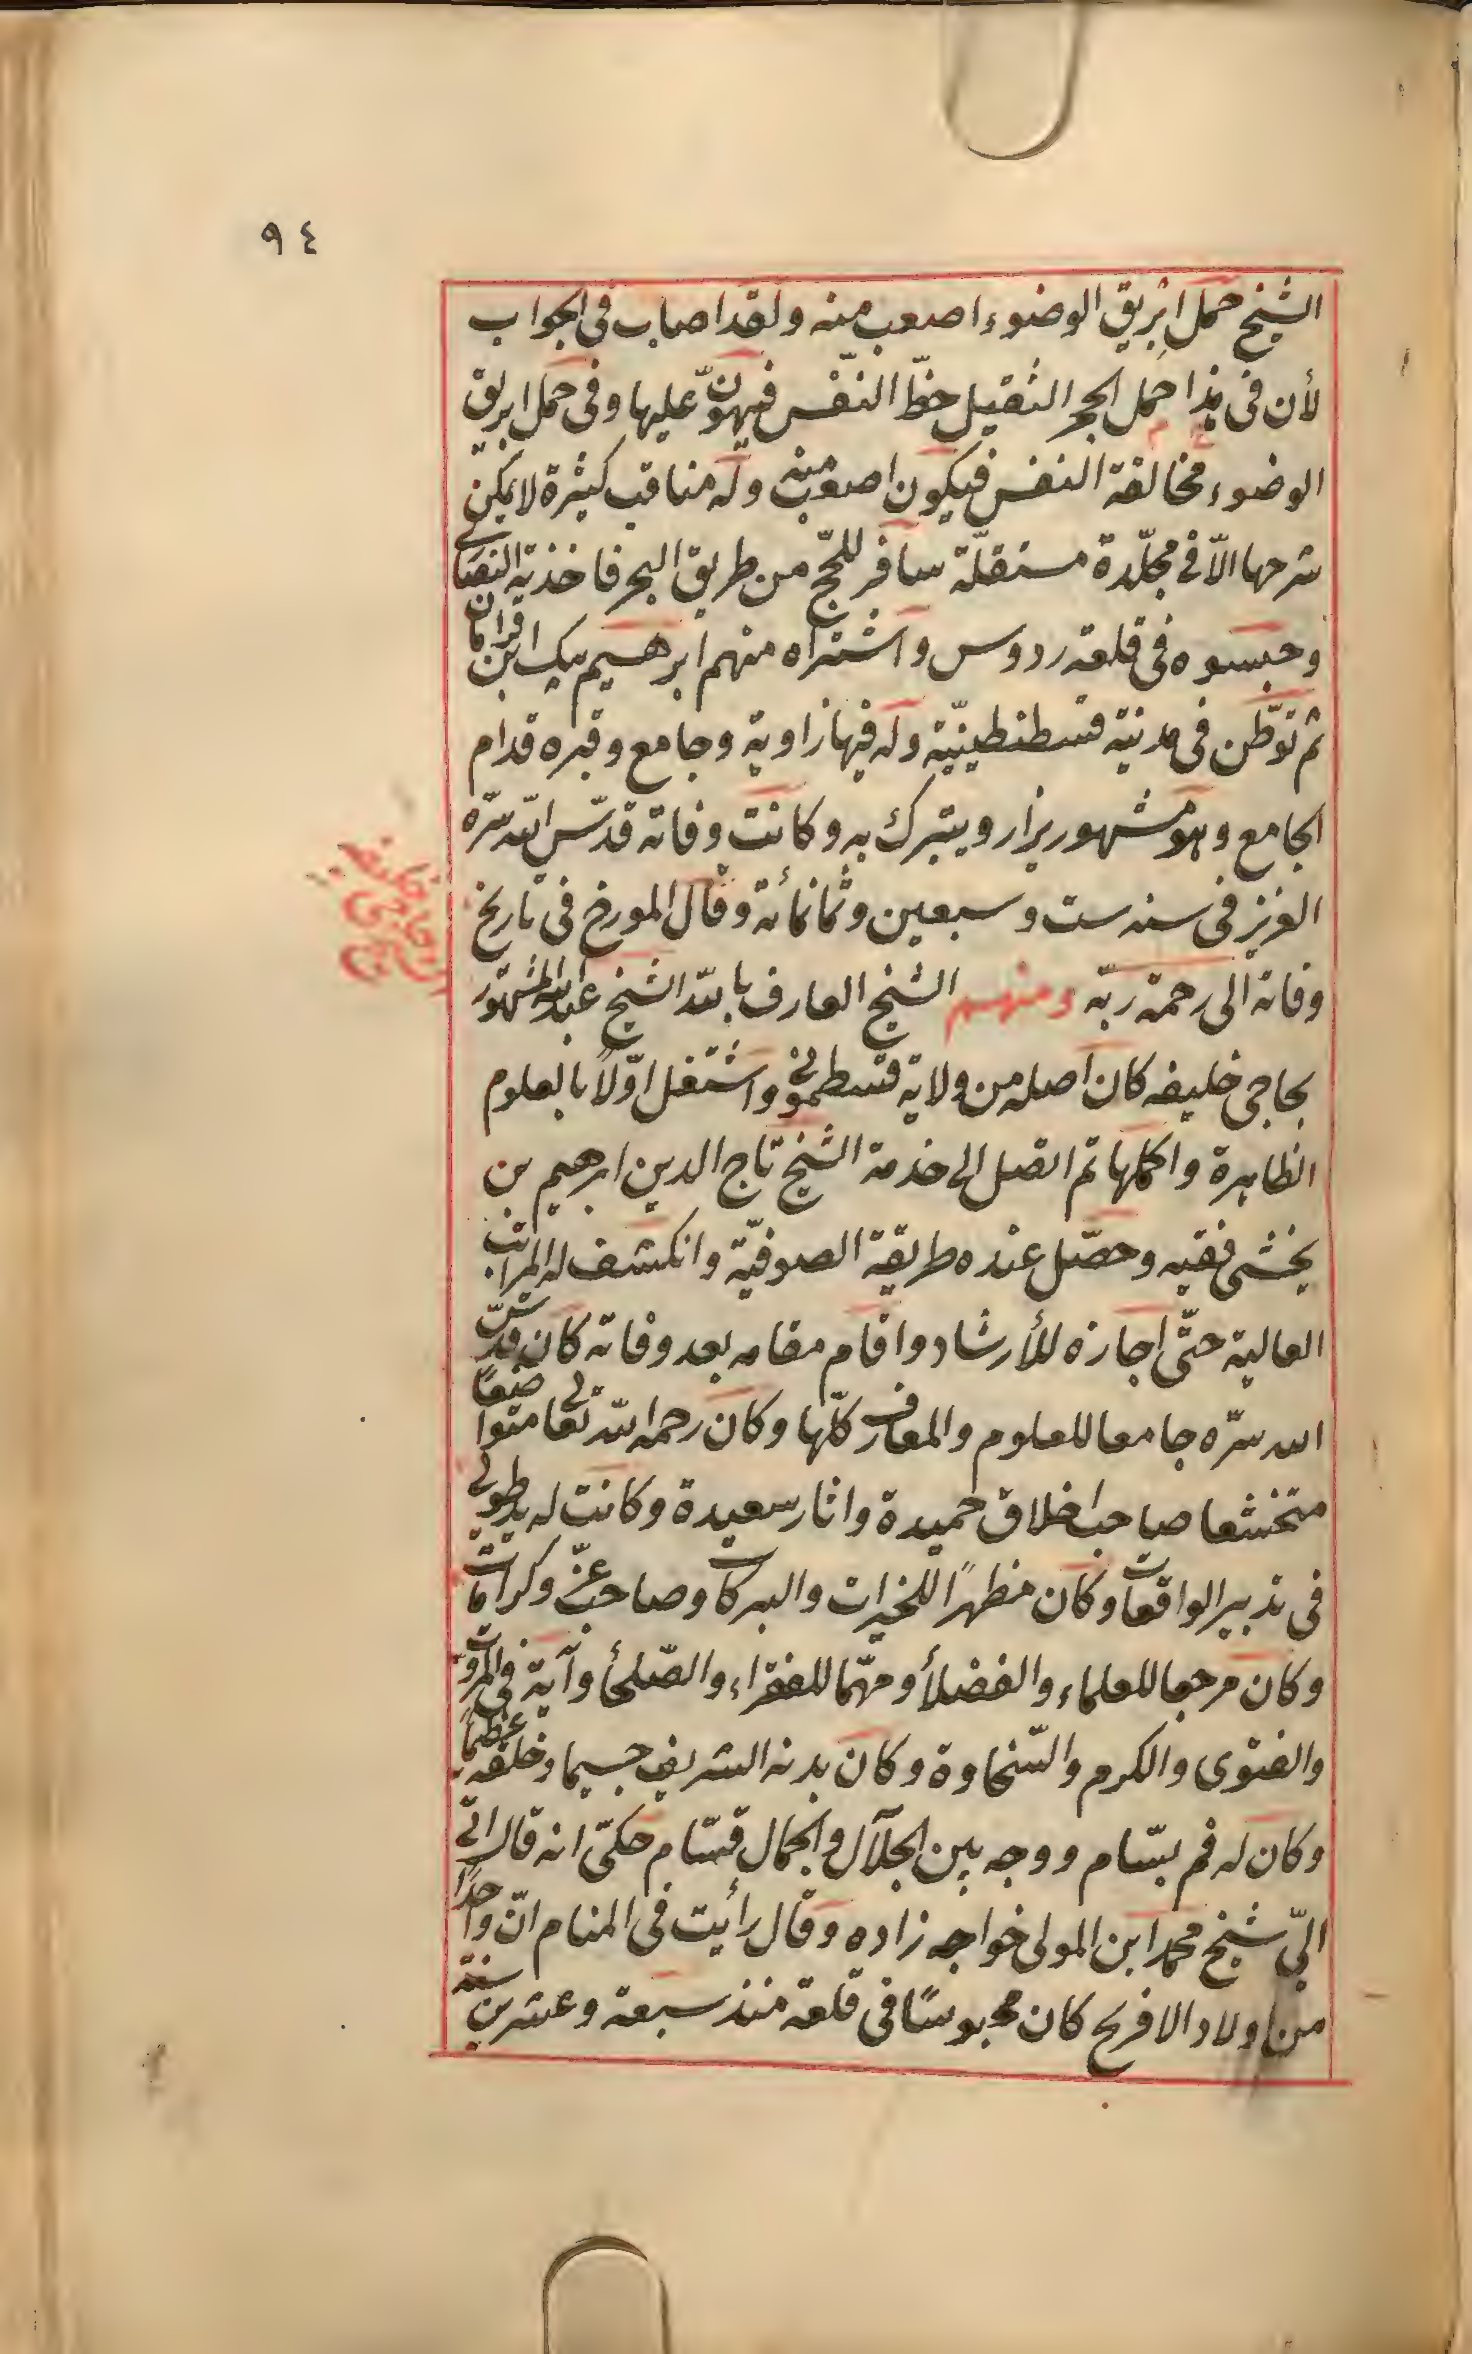 ٩٤
الشيخ حمل ابريق الوضوء اصعب منه ولقد اصاب فى الجواب
لأن فى هذا حمل الحجر الثقيل حظّ النّفس فيهوّن عليها وفى حمل ابريق
الوضوء مخالفة النفس فيكون اصعب منه وله مناقب كثيرة لا يمكن
شرحها الاّ فى مجلّدة مستقلّة سافر للحّج من طريق البحر فاخذته النصارى
وحبسوه فى قلعة ردوس واشتراه منهم ابرهيم بيك ابن قرامان
ثم توطّن فى مدينة قسطنطينيّة وله فيها زاوية وجامع وقبره قدام
الجامع وهو مشهور يزار ويتبرك به وكانت وفاته قدّس الله سرّه
العزيز فى سنه ست وسبعين وثمانمائة وقال المورخ فى تاريخ
وفاته الى رحمة ربّه ومنهم الشيخ العارف بالله الشيخ عبد الله المشهور
بحاجى خليفه كان اصله من ولاية قسطمونى واشتغل اوّلاً بالعلوم
الظاهرة واكملها ثم اتصل الى خدمة الشيخ تاج الدين ابرهيم بن
بخشى فقيه وحصّل عنده طريقة الصوفيّة وانكشف له المراتب
العالية حتّى اجازه للأرشاد واقام مقامه بعد وفاته كان قدّس
الله سرّه جامعا للعلوم والمعارف كلّها وكان رحمه الله تعالى متواضعاً
متخشعا صاحب اخلاق حميدة واثار سعيدة وكانت له يد طولى
فى تدبير الواقعات وكان مظهراً للخيرات والبركات وصاحب عزّ وكرامات
وكان مرجعا للعلماء والفضلأ ومهّما للفقراء والصّلحأ وآية فى المروت
والفتوى والكرم والسّخاوة وكان بدنه الشريف جسيما وخلقه عظيماً
وكان له فم بسّام ووجه بين الجلآل والجمال قسّام حكىّ انه قال اتى
الىّ شيخ محمد ابن المولى خواجه زاده وقال رأيت فى المنام انّ واحداً
من اولاد الافرنج كان محبوسًا فى قلعة منذ سبعة وعشرين سنة